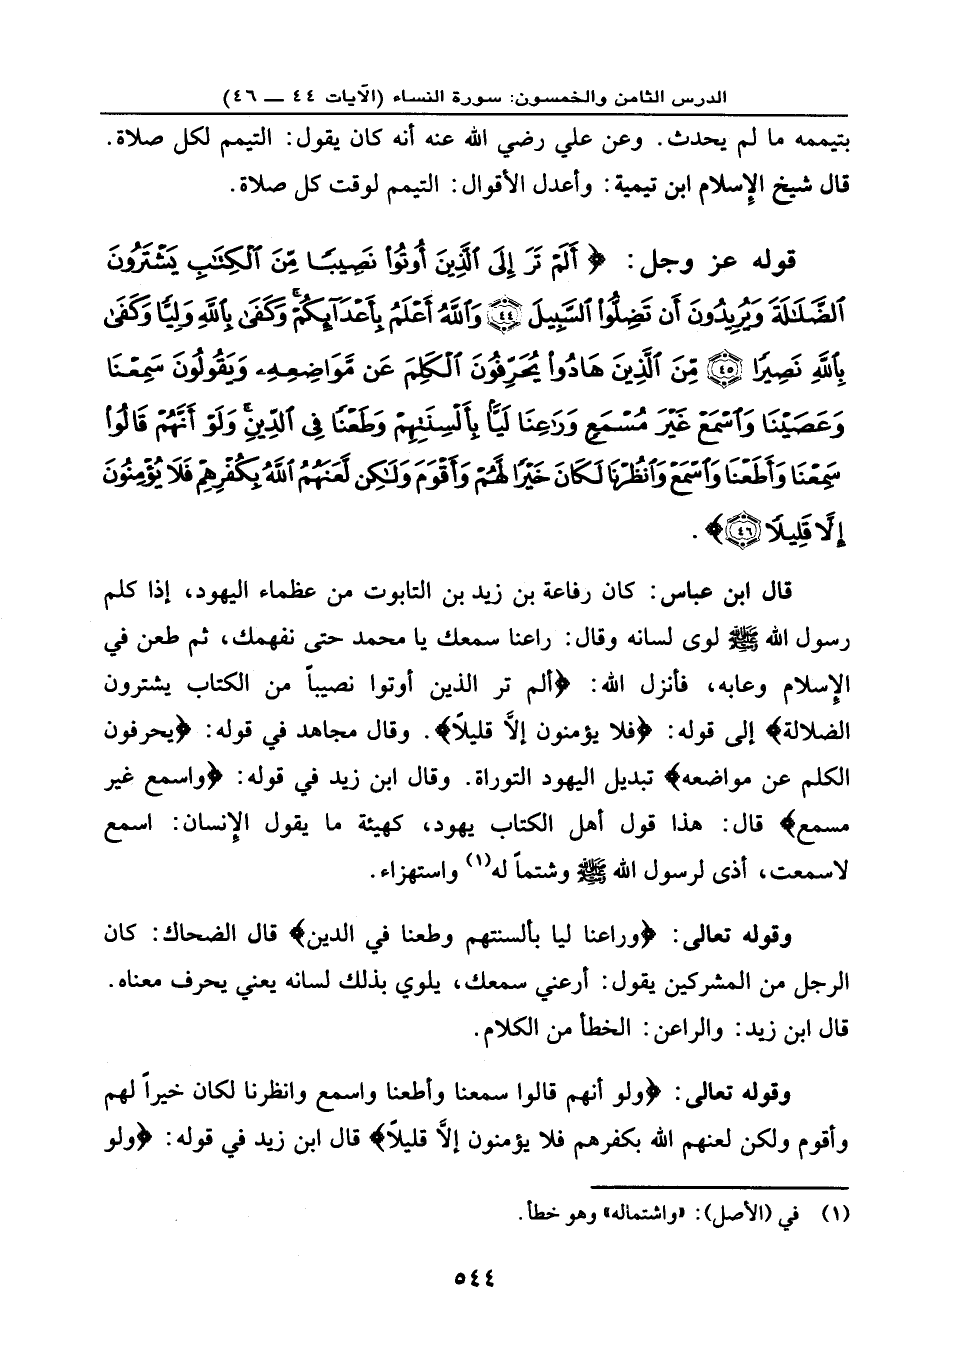 الدرس الثامن والخمسون: سورة النساء (الآيات ٤٤ ــ ٤٦)
بتيممه ما لم يحدث. وعن علي رضي الله عنه أنه كان يقول: التيمم لكل صلاة.
قال شيخ الإسلام ابن تيمية: وأعدل الأقوال: التيمم لوقت كل صلاة.
قوله عز وجل: ﴿ أَلَمْ تَرَ إِلَى ٱلَّذِينَ أُوتُوا۟ نَصِيبًا مِّنَ ٱلْكِتَٰبِ يَشْتَرُونَ
ٱلضَّلَٰلَةَ وَيُرِيدُونَ أَن تَضِلُّوا۟ ٱلسَّبِيلَ ٤٤ وَٱللَّهُ أَعْلَمُ بِأَعْدَآئِكُمْ ۚ وَكَفَىٰ بِٱللَّهِ وَلِيًّا وَكَفَىٰ
بِٱللَّهِ نَصِيرًا ٤٥ مِّنَ ٱلَّذِينَ هَادُوا۟ يُحَرِّفُونَ ٱلْكَلِمَ عَن مَّوَاضِعِهِۦ وَيَقُولُونَ سَمِعْنَا
وَعَصَيْنَا وَٱسْمَعْ غَيْرَ مُسْمَعٍ وَرَٰعِنَا لَيًّۢا بِأَلْسِنَتِهِمْ وَطَعْنًا فِى ٱلدِّينِ ۚ وَلَوْ أَنَّهُمْ قَالُوا۟
سَمِعْنَا وَأَطَعْنَا وَٱسْمَعْ وَٱنظُرْنَا لَكَانَ خَيْرًا لَّهُمْ وَأَقْوَمَ وَلَٰكِن لَّعَنَهُمُ ٱللَّهُ بِكُفْرِهِمْ فَلَا يُؤْمِنُونَ
إِلَّا قَلِيلًا ٤٦ ﴾ .
قال ابن عباس: كان رفاعة بن زيد بن التابوت من عظماء اليهود، إذا كلم
رسول الله ﷺ لوى لسانه وقال: راعنا سمعك يا محمد حتى نفهمك، ثم طعن في
الإسلام وعابه، فأنزل الله: ﴿ألم تر الذين أوتوا نصيباً من الكتاب يشترون
الضلالة﴾ إلى قوله: ﴿فلا يؤمنون إلاَّ قليلاً﴾. وقال مجاهد في قوله: ﴿يحرفون
الكلم عن مواضعه﴾ تبديل اليهود التوراة. وقال ابن زيد في قوله: ﴿واسمع غير
مسمع﴾ قال: هذا قول أهل الكتاب يهود، كهيئة ما يقول الإنسان: اسمع
لاسمعت، أذى لرسول الله ﷺ وشتماً له(١) واستهزاء.
وقوله تعالى: ﴿وراعنا ليا بألسنتهم وطعنا في الدين﴾ قال الضحاك: كان
الرجل من المشركين يقول: أرعني سمعك، يلوي بذلك لسانه يعني يحرف معناه.
قال ابن زيد: والراعن: الخطأ من الكلام.
وقوله تعالى: ﴿ولو أنهم قالوا سمعنا وأطعنا واسمع وانظرنا لكان خيراً لهم
وأقوم ولكن لعنهم الله بكفرهم فلا يؤمنون إلاَّ قليلاً﴾ قال ابن زيد في قوله: ﴿ولو
(١) في (الأصل): «واشتماله» وهو خطأ.
٥٤٤